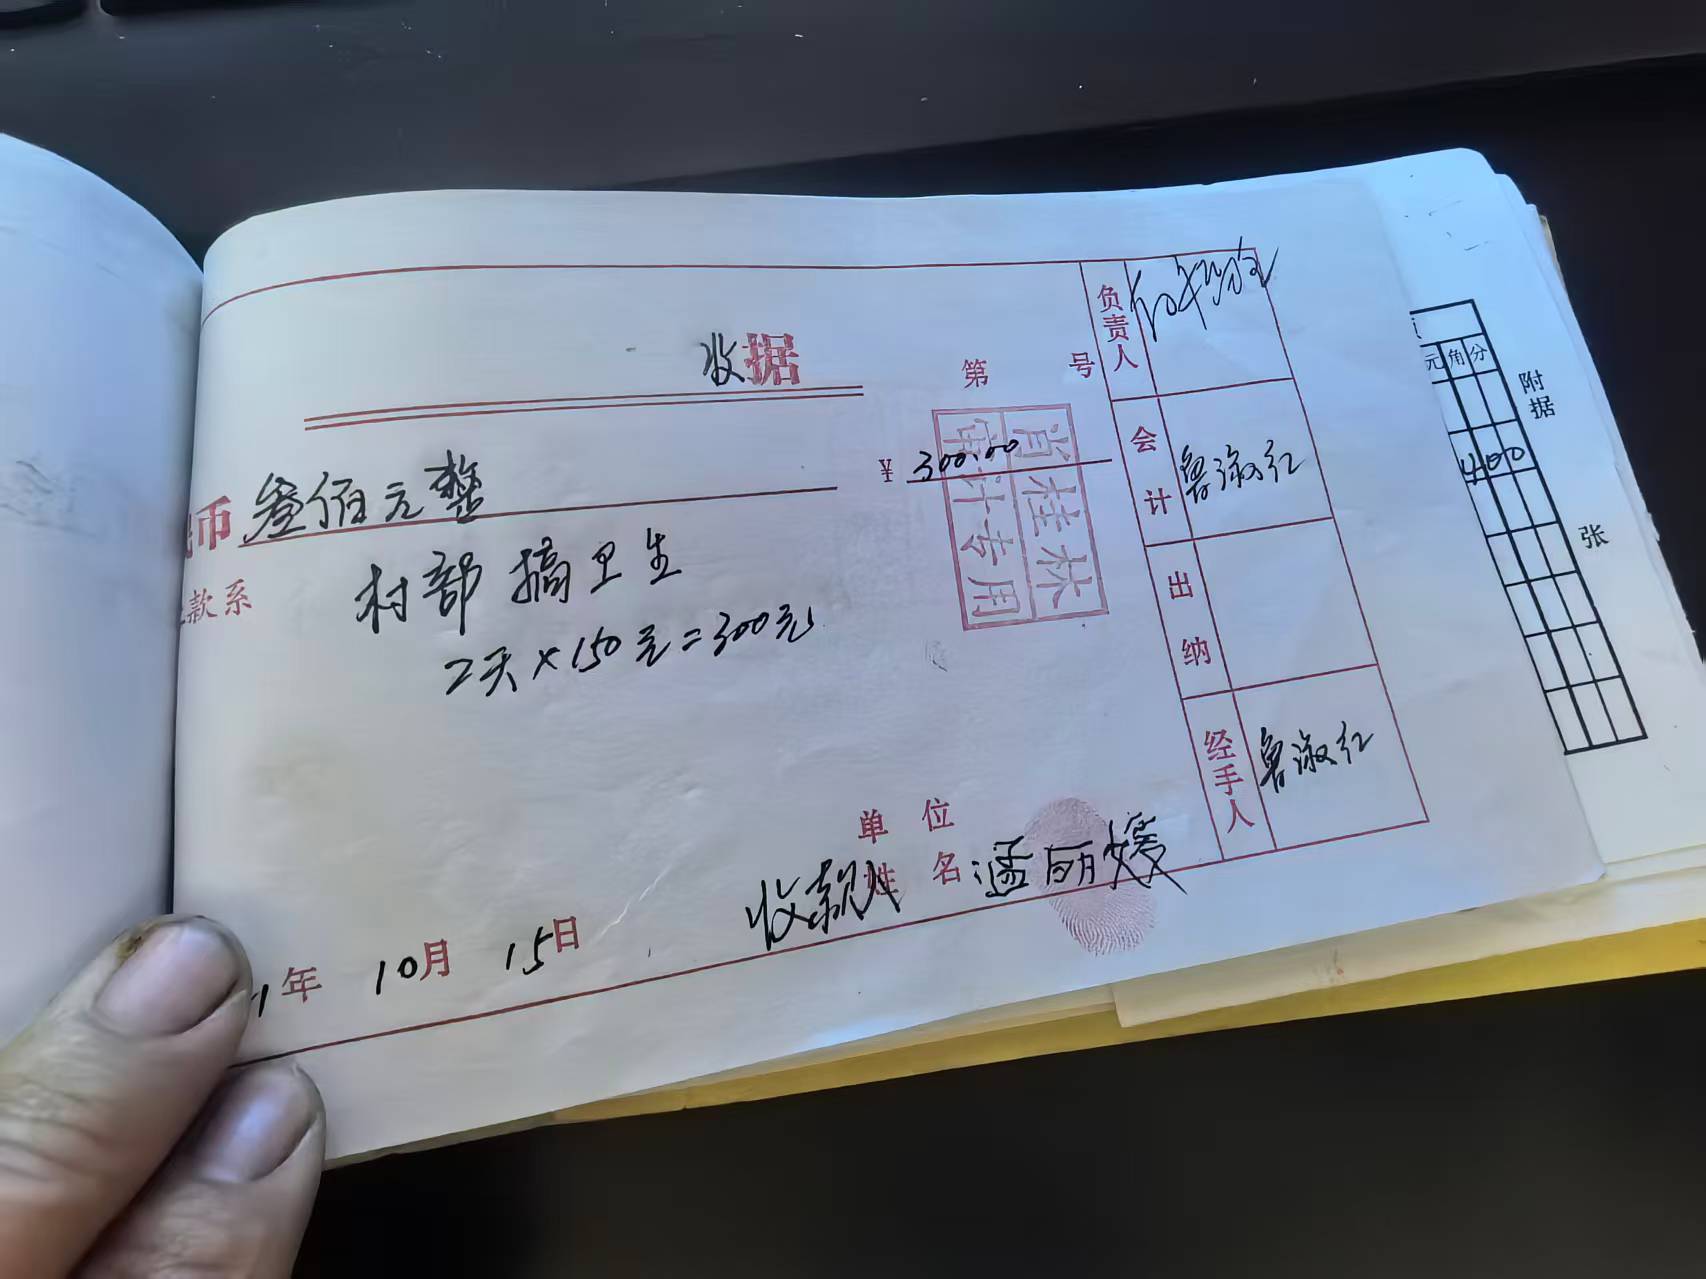 收据
第 号
币 叁佰元整
¥ 300.00
款系 村部搞卫生
2天×150元=300元
肖桂林
审计专用
负责人
会计 鲁淑红
出纳
经手人 鲁淑红
单位
姓名
收款人 孟丽媛
1年 10月 15日
元角分
400
附据
张